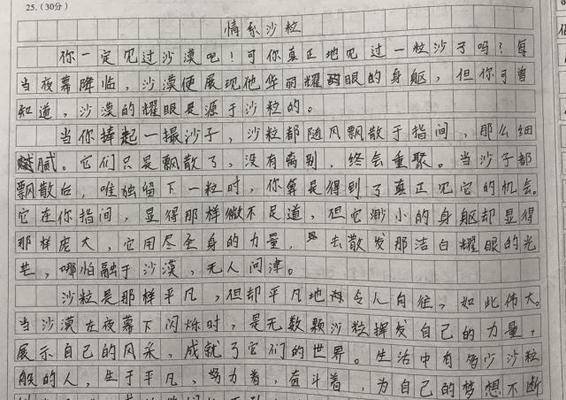 25.（30分）
情系沙粒
你一定见过沙漠吧！可你真正地见过一粒沙子吗？每
当夜幕降临，沙漠便展现他华丽耀眼的身躯，但你可曾
知道，沙漠的耀眼是源于沙粒的。
当你捧起一撮沙子，沙粒都随风飘散于指间，那么细
腻。它们只是飘散了，没有离别，终会重聚。当沙子都
飘散后，唯独留下一粒时，你算是得到了真正见它的机会。
它在你指间，显得那样微不足道，但它渺小的身躯却显得
那样庞大，它用尽全身的力量，去散发那洁白耀眼的光
芒，哪怕融于沙漠，无人问津。
沙粒是那样平凡，但却平凡地令人向往，如此伟大。
当沙漠在夜幕下闪烁时，是无数颗沙粒挥发自己的力量，
展示自己的风采，成就了它们的世界。生活中有多少沙粒
般的人，生于平凡，努力着，奋斗着，为自己的梦想不断